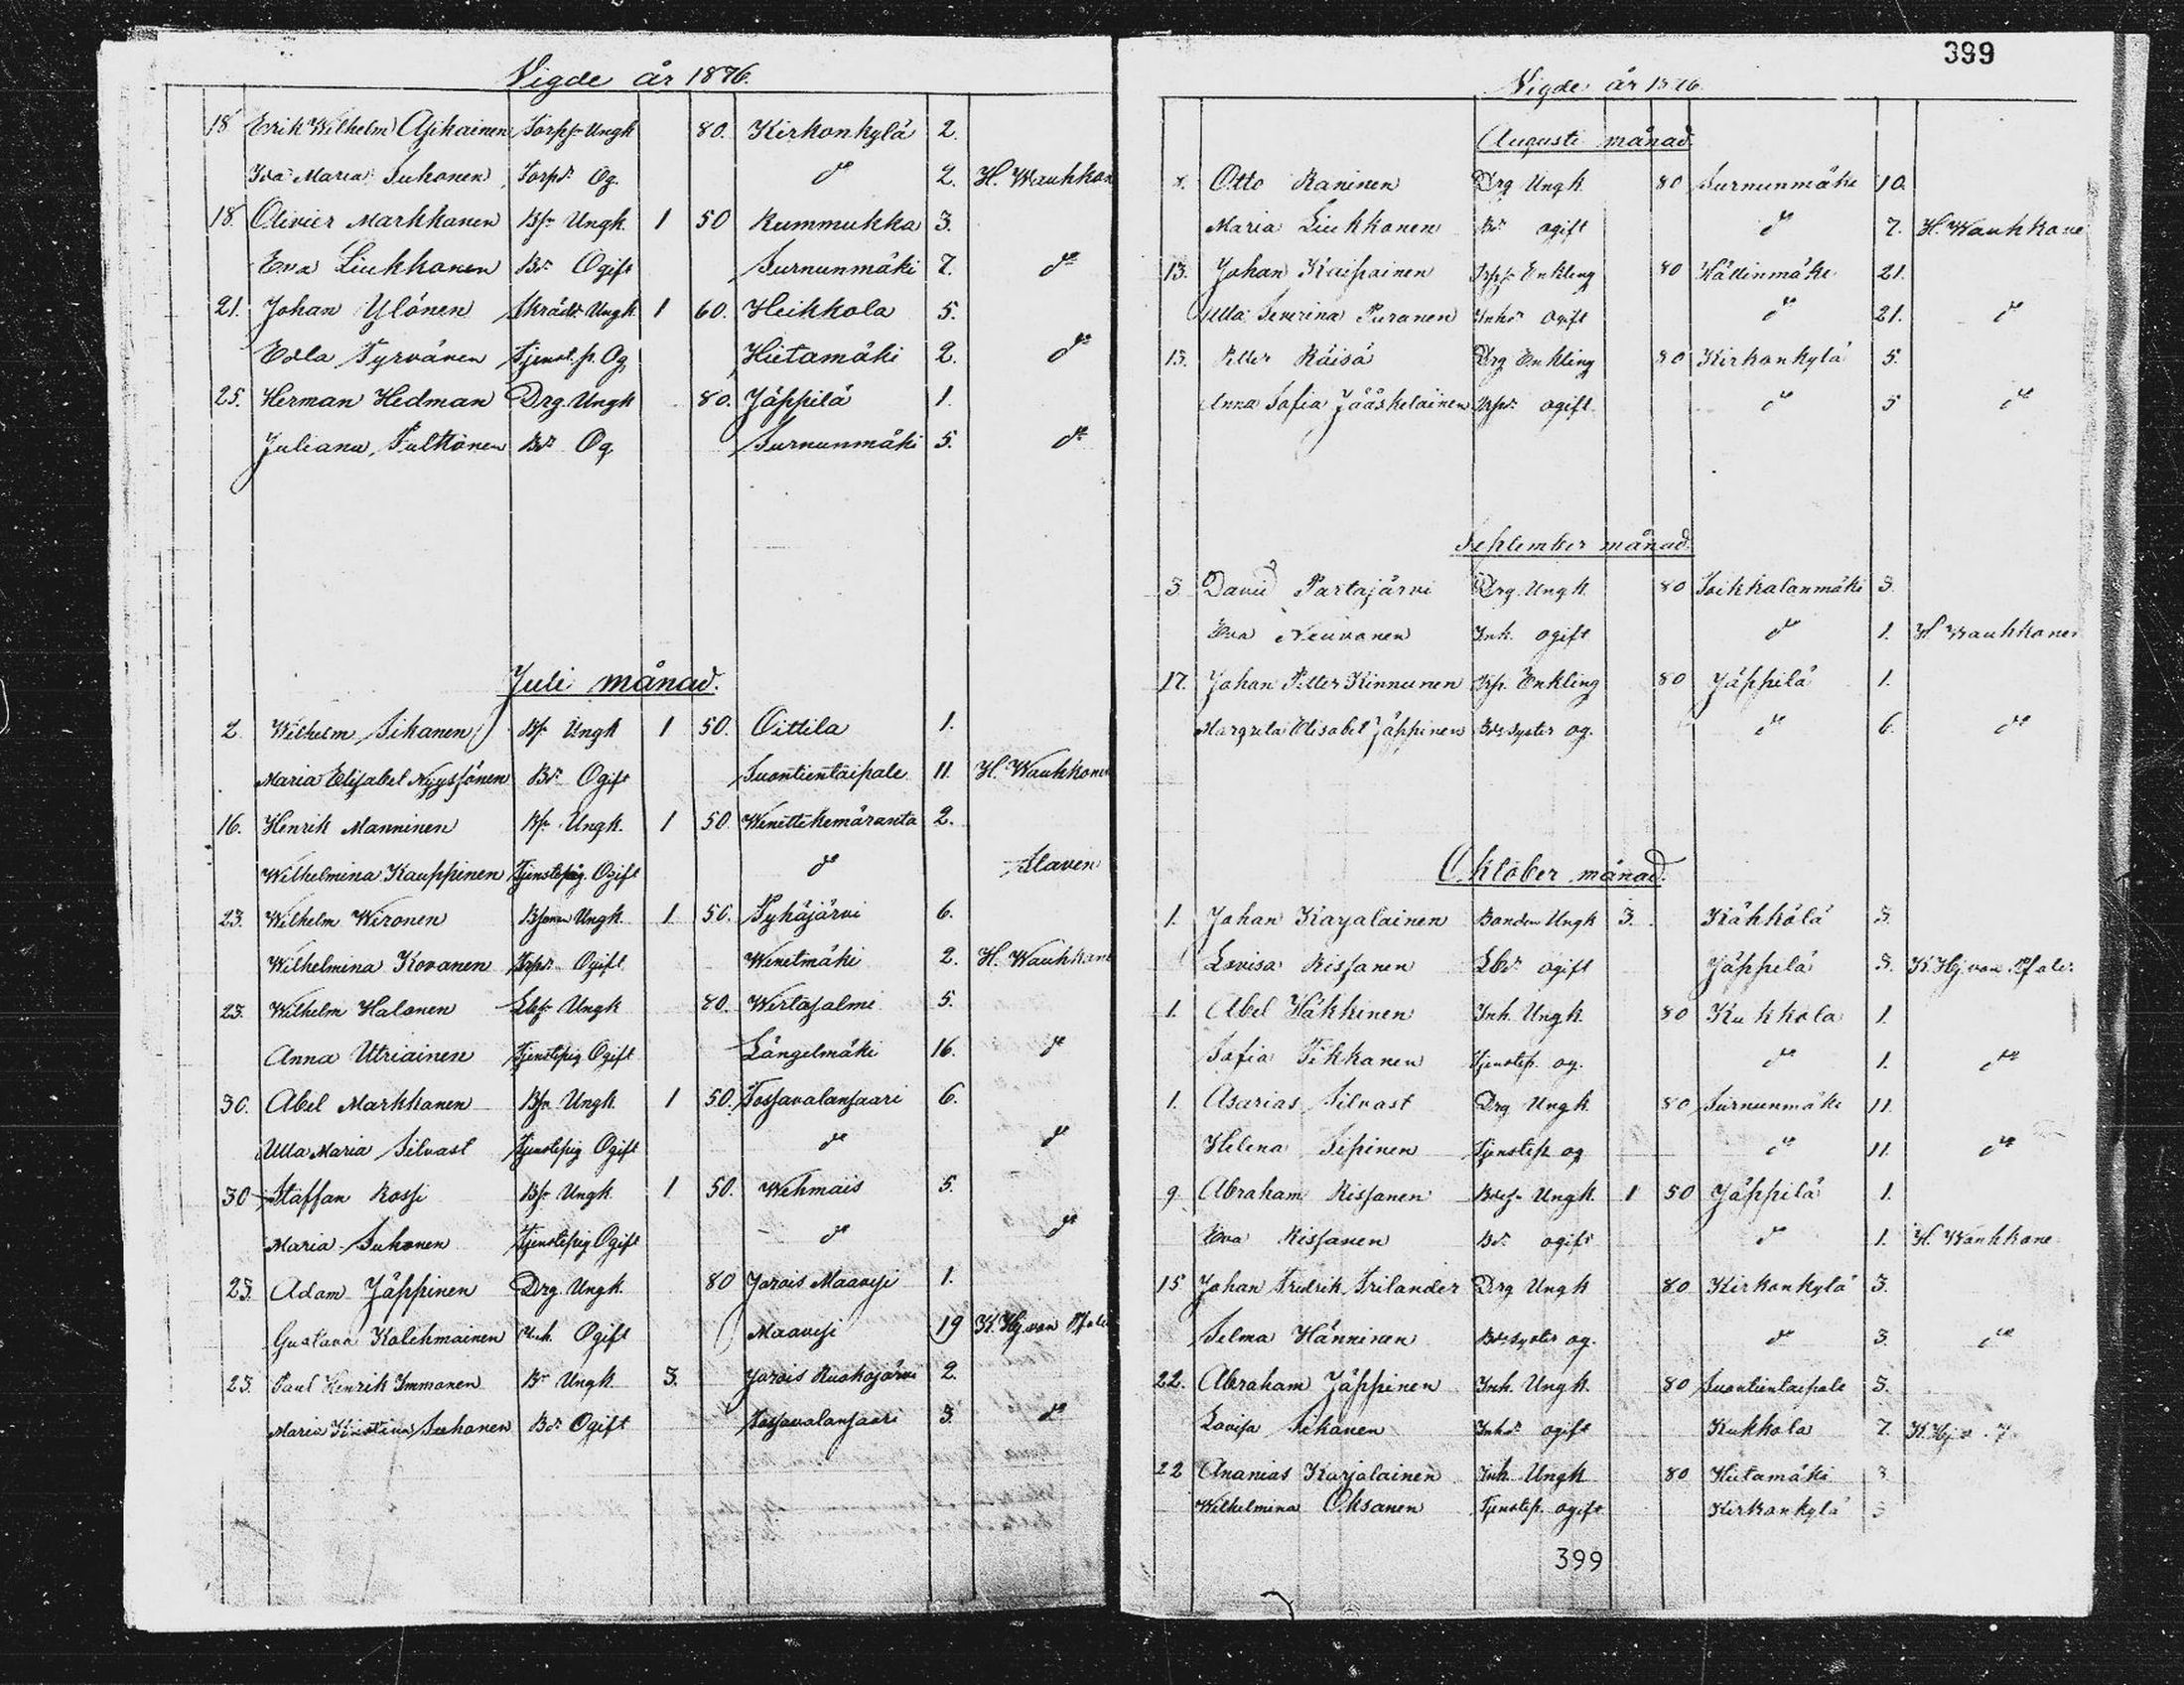 Vigde år 1876.
18 Erik Wilhelm Asikainen Torpsn Ungk 80. Kirkonkylä 2.
Ida Maria Suhonen Torpdr Og. do 2. H. Waukkon
18. Olivier Markkanen Bsn Ungk. 1 50 Rummukka 3.
Eva Liukkonen Bdr Ogift Surnunmäki 7. do
21. Johan Ylönen Skrädd. Ungk 1 60. Heikkola 5.
Edla Tyrvänen Tjenst. p. Og Hietamäki 2. do
25. Herman Hedman Drg. Ungk 80. Jäppilä 1.
Juliana Pulkönen Bdr Og Surnunmäki 5. do
Juli månad.
2. Wilhelm Sikanen Bsn Ungk 1 50. Oittila 1.
Maria Elisabet Nyyssönen Bdr Ogift Suontientaipale 11. H. Waukkone
16. Henrik Manninen Bsn Ungk. 1 50. Wenettekemäranta 2.
Wilhelmina Kauppinen Tjenstepig. Ogift do Slaven
23. Wilhelm Wironen Bsonen Ungk. 1 50. Pyhäjärvi 6.
Wilhelmina Kovanen Trpdr Ogift Wenetmäki 2. H. Waukkone
23. Wilhelm Halonen Lbsn Ungk 80. Wirtasalmi 5.
Anna Utriainen Tjenstepig Ogift Längelmäki 16. do
30. Abel Markkanen Bsn Ungk. 1 50. Tossavalansaari 6.
Ulla Maria Silvast Tjenstepig Ogift do do
30 Staffan Rossi Bsn Ungk. 1 50. Wehmais 5.
Maria Suhonen Tjenstepig Ogift do do
23. Adam Jäppinen Drg. Ungk. 80 Jorois Maavesi 1.
Gustava Kolehmainen Inh. Ogift Maavesi 19 K. Hj. von Pfale
23. Paul Henrik Immonen Bn Ungk. 3. Jorois Ruokojärvi 2.
Maria Kristina Suhonen Bdr Ogift Tossavalansaari 3. do
399
Vigde år 1876.
Augusti månad.
Otto Raninen Drg Ungk. 80 Surnunmäki 10.
Maria Liukkonen Bdr ogift do 7. H. Waukkone
13. Johan Kaipainen Trpsn Enkling 80 Hällinmäki 21.
Ulla Severina Puranen Inhdr ogift do 21. do
13. Petter Räisä Drg Enkling 80 Kirkonkylä 5.
Anna Sofia Jääskelainen Trpdr ogift do 5 do
September månad.
3. David Partajärvi Drg. Ungk. 80 Soikkalanmäki 3.
Eva Neuvonen Inh. ogift do 1. H Waukkonen
17. Johan Petter Kinnunen Trp. Enkling 80 Jäppilä 1.
Margreta Elisabet Jäppinen Bdesyster og. do 6. do
Oktober månad.
1. Johan Karjalainen Bonden Ungk 3. Kähkölä 3.
Lovisa Rissanen Lbdr ogift Jäppilä 3. K. Hj. von Pfaler
1. Abel Häkkinen Inh. Ungk. 80 Kukkola 1.
Sofia Tikkanen Tjenstep. og. do 1. do
1. Asarias Silvast Drg Ungk. 80 Surnunmäki 11.
Helena Sepinen Tjenstep og do 11. do
9. Abraham Rissanen Bdesn Ungk. 1 50 Jäppilä 1.
Eva Rissanen Bdr ogift do 1. H. Waukkone
15 Johan Fredrik Frilander Drg Ungk 80 Kirkonkylä 3.
Selma Hänninen Bdesyster og. do 3. do
22. Abraham Jäppinen Inh. Ungk. 80 Suontientaipale 3.
Lovisa Sikanen Inhdr ogift Kukkola 7. K. Hj v.
22 Ananias Karjalainen Inh. Ungk 80 Hietamäki 3
Wilhelmina Oksanen Tjenstep. ogift Kirkonkylä 3
399